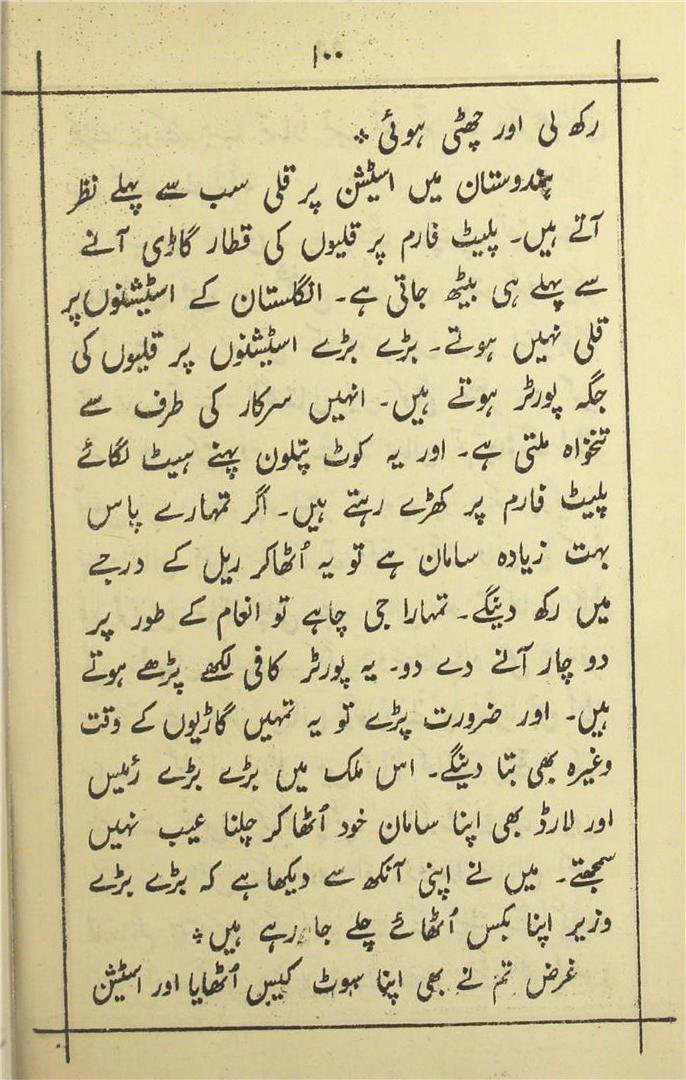 ۱۰۰
رکھ لی اور چھٹی ہوئی ؞
ہندوستان میں اسٹیشن پر قلی سب سے پہلے نظر
آتے ہیں۔ پلیٹ فارم پر قلیوں کی قطار گاڑی آنے
سے پہلے ہی بیٹھ جاتی ہے۔ انگلستان کے اسٹیشنوں پر
قلی نہیں ہوتے۔ بڑے بڑے اسٹیشنوں پر قلیوں کی
جگہ پورٹر ہوتے ہیں۔ انہیں سرکار کی طرف سے
تنخواہ ملتی ہے۔ اور یہ کوٹ پتلون پہنے ہیٹ لگائے
پلیٹ فارم پر کھڑے رہتے ہیں۔ اگر تمہارے پاس
بہت زیادہ سامان ہے تو یہ اُٹھاکر ریل کے درجے
میں رکھ دینگے۔ تمہارا جی چاہے تو انعام کے طور پر
دو چار آنے دے دو۔ یہ پورٹر کافی لکھے پڑھے ہوتے
ہیں۔ اور ضرورت پڑے تو یہ تمہیں گاڑیوں کے وقت
وغیرہ بھی بتا دینگے۔ اس ملک میں بڑے بڑے رئیس
اور لارڈ بھی اپنا سامان خود اُٹھا کر چلنا عیب نہیں
سمجھتے۔ میں نے اپنی آنکھ سے دیکھا ہے کہ بڑے بڑے
وزیر اپنا بکس اُٹھائے چلے جا رہے ہیں ؞
غرض تم نے بھی اپنا سوٹ کیس اُٹھایا اور اسٹیشن